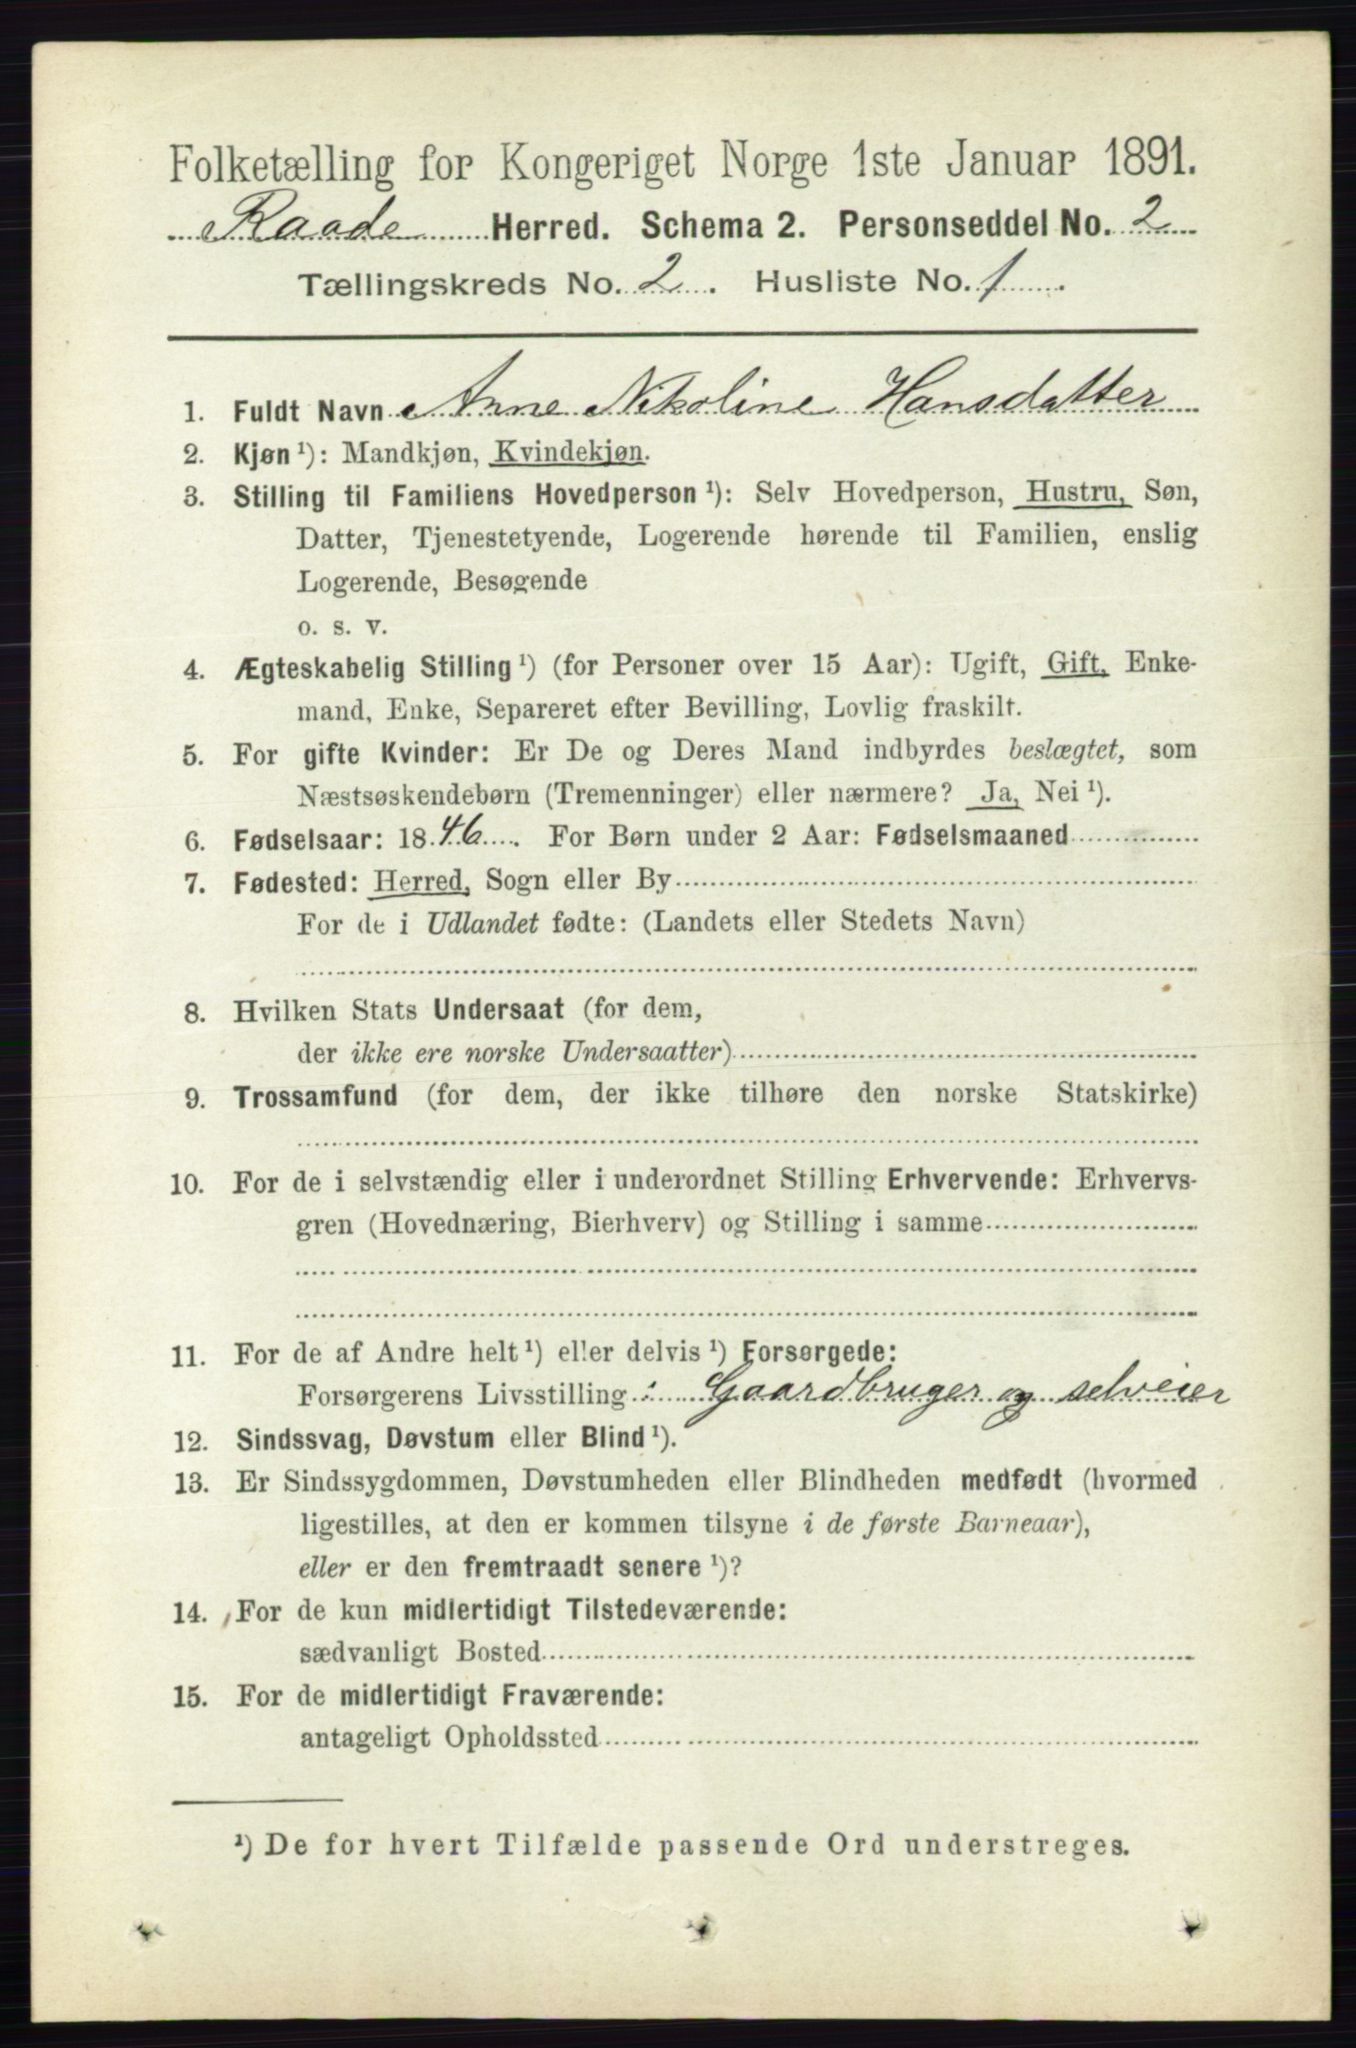 Folketælling for Kongeriget Norge 1ste Januar 1891.
Raade Herred. Schema 2. Personseddel No. 2
Tællingskreds No. 2. Husliste No. 1.
1. Fuldt Navn Anne Nikoline Hansdatter
2. Kjøn ¹): Mandkjøn, Kvindekjøn.
3. Stilling til Familiens Hovedperson ¹): Selv Hovedperson, Hustru, Søn,
Datter, Tjenestetyende, Logerende hørende til Familien, enslig
Logerende, Besøgende
o. s. v.
4. Ægteskabelig Stilling ¹) (for Personer over 15 Aar): Ugift, Gift, Enke-
mand, Enke, Separeret efter Bevilling, Lovlig fraskilt.
5. For gifte Kvinder: Er De og Deres Mand indbyrdes beslægtet, som
Næstsøskendebørn (Tremenninger) eller nærmere? Ja, Nei ¹).
6. Fødselsaar: 1846. For Børn under 2 Aar: Fødselsmaaned
7. Fødested: Herred, Sogn eller By
For de i Udlandet fødte: (Landets eller Stedets Navn)
8. Hvilken Stats Undersaat (for dem,
der ikke ere norske Undersaatter)
9. Trossamfund (for dem, der ikke tilhøre den norske Statskirke)
10. For de i selvstændig eller i underordnet Stilling Erhvervende: Erhvervs-
gren (Hovednæring, Bierhverv) og Stilling i samme
11. For de af Andre helt ¹) eller delvis ¹) Forsørgede:
Forsørgerens Livsstilling: Gaardbruger og selveier
12. Sindssvag, Døvstum eller Blind ¹).
13. Er Sindssygdommen, Døvstumheden eller Blindheden medfødt (hvormed
ligestilles, at den er kommen tilsyne i de første Barneaar),
eller er den fremtraadt senere ¹)?
14. For de kun midlertidigt Tilstedeværende:
sædvanligt Bosted
15. For de midlertidigt Fraværende:
antageligt Opholdssted
¹) De for hvert Tilfælde passende Ord understreges.